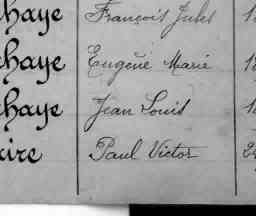 haye François Jules 1
haye Eugène Marie 18
haye Jean Louis 1
aire Paul Victor 2